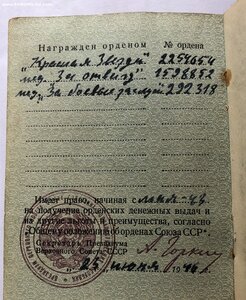 Награжден орденом № ордена
"Красная Звезда" 2254654
мед. "За отвагу" 1598852
мед. "За боевые заслуги" 292318
Имеет право, начиная с
на получение орденских денежных выдач и
на другие льготы и преимущества, согласно
"Общему положению об орденах Союза ССР".
Секретарь Президиума
Верховного Совета СССР А. Горкин
"25" июня 194